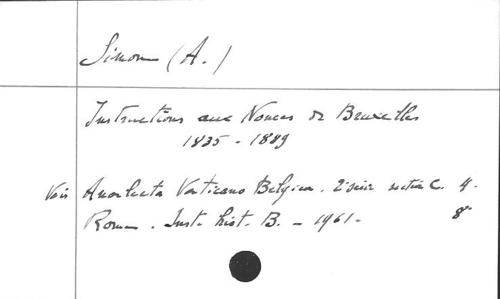 Simon (A.)
Instructions aux Nonces de Bruxelles
1835 - 1889
Voir Analecta Vaticano Belgica. 2e série section C. 4.
Rome. Inst. hist. B. - 1961. 8°